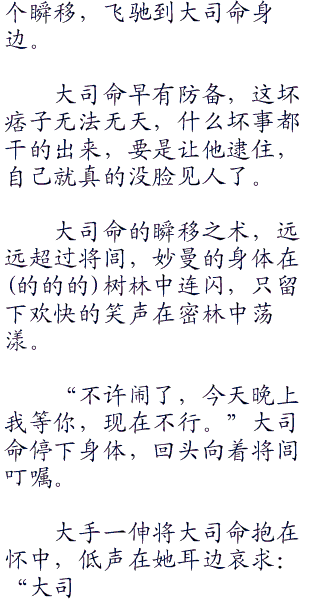 个瞬移，飞驰到大司命身
边。
大司命早有防备，这坏
痞子无法无天，什么坏事都
干的出来，要是让他逮住，
自己就真的没脸见人了。
大司命的瞬移之术，远
远超过将闾，妙曼的身体在
(的的的)树林中连闪，只留
下欢快的笑声在密林中荡
漾。
“不许闹了，今天晚上
我等你，现在不行。”大司
命停下身体，回头向着将闾
叮嘱。
大手一伸将大司命抱在
怀中，低声在她耳边哀求：
“大司